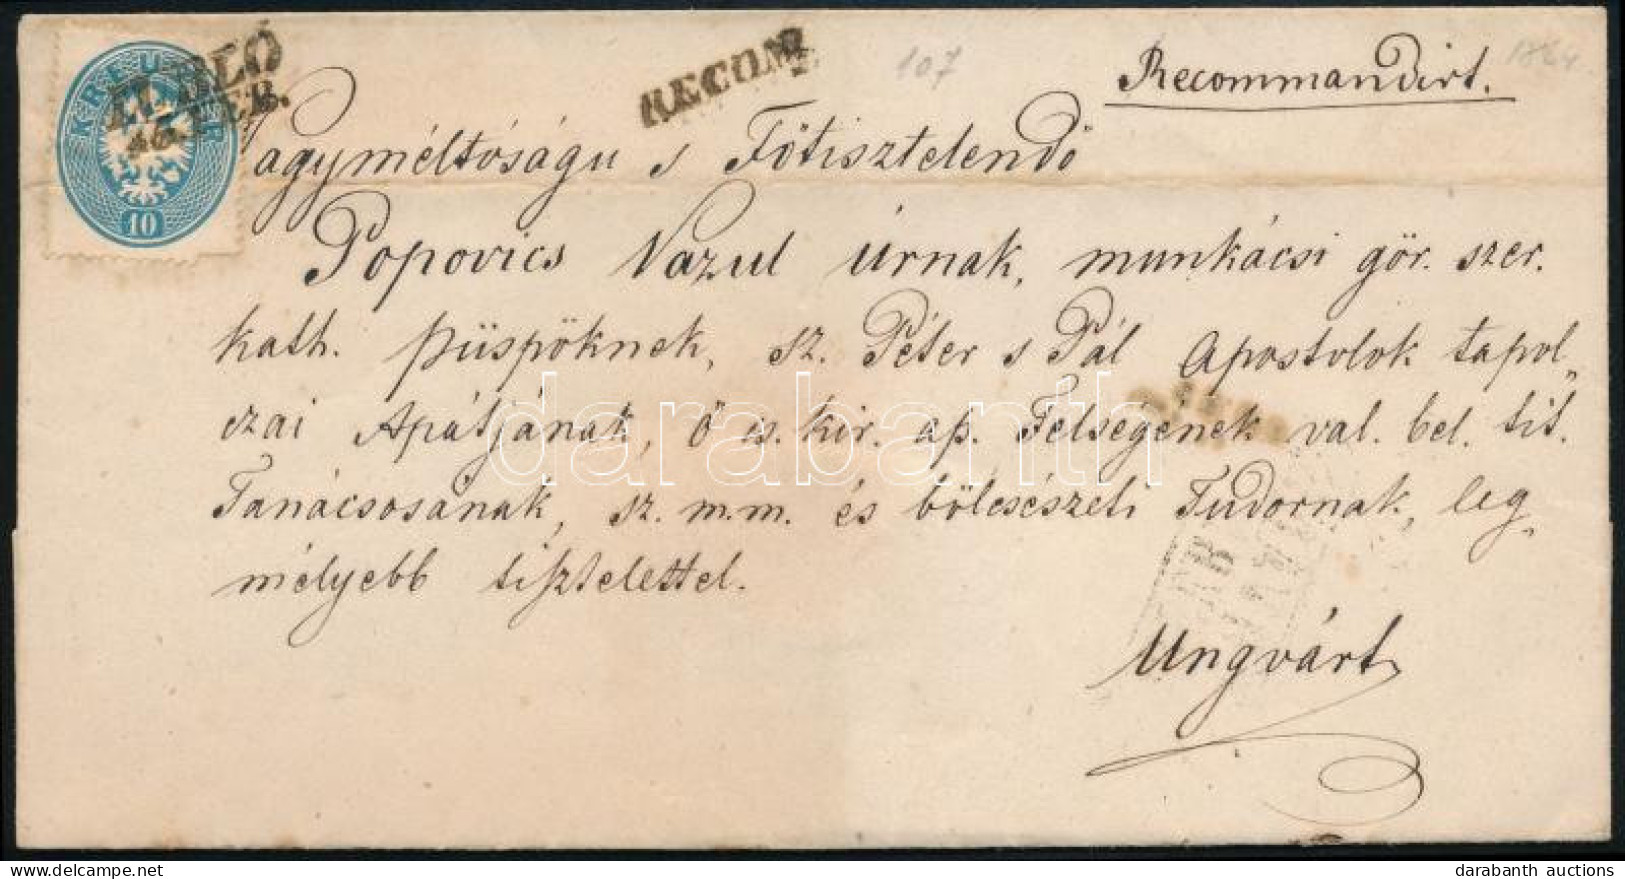 KREUZER
10
LUBLÓ
FEB.
RECOM
107
Recommandirt.
Nagyméltóságu s Főtisztelendő
Popovics Vazul úrnak, munkácsi gör. szer.
kath. püspöknek, sz. Péter s Pál Apostolok tapol„
czai Apátjának, ő cs. kir. ap. Felségének val. bel. tit.
Tanácsosának, sz. m. m. és bölcsészeti Tudornak, leg„
mélyebb tisztelettel.
Ungvárt
darabanth
darabanth auctions